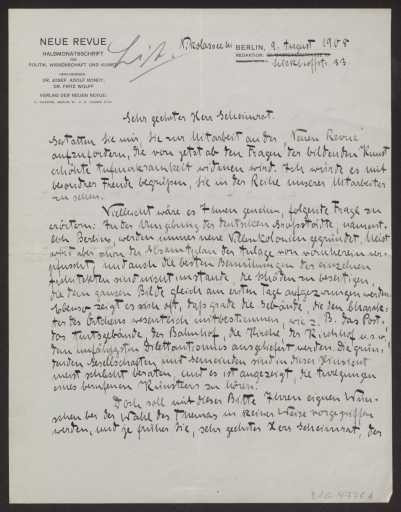 NEUE REVUE
HALBMONATSSCHRIFT
FÜR
POLITIK, WISSENSCHAFT UND KUNST
HERAUSGEBER:
DR. JOSEF ADOLF BONDY,
DR. FRITZ WOLFF
VERLAG DER NEUEN REVUE:
Nikolassee bei BERLIN, 9. August 1908
REDAKTION:
33
Sehr geehrter Herr Geheimrat.
Gestatten Sie mir, Sie zur Mitarbeit an der „Neuen Revue"
aufzufordern, die von jetzt ab den Fragen der bildenden Kunst
erhöhte Aufmerksamkeit widmen wird. Ich würde es mit
besondrer Freude begrüssen, Sie in der Reihe unserer Mitarbeiter
zu sehen.
Vielleicht wäre es Ihnen genehm, folgende Frage zu
erörtern: In der Umgebung der deutschen Grossstädte, nament-
lich Berlins, werden immer neue Villenkolonien gegründet. Meist
wird aber schon der Situationsplan der Anlage von vornherein ver-
pfuscht, und auch die besten Bemühungen der einzelnen
Architekten sind nicht imstande, die Schäden zu beseitigen,
die dem ganzen Bilde gleich am ersten Tage aufgezwungen werden.
Ebenso zeigt es sich oft, dass grade die Gebäude, die den Charak-
ter des Ortes wesentlich mitbestimmen, wie z. B. das Post-
das Amtsgebäude, der Bahnhof, die Kirche, der Kirchhof u.s.w.
dem unfähigsten Dilettantismus ausgeliefert werden. Die grün-
denden Gesellschaften und Gemeinden sind in dieser Hinsicht
meist schlecht beraten, und es ist angezeigt, die Anregungen
eines berufenen Künstlers zu hören.
Doch soll mit dieser Bitte Ihren eignen Wün-
schen bei der Wahl des Themas in keiner Weise vorgegriffen
werden, und je früher Sie, sehr geehrter Herr Geheimrat, der